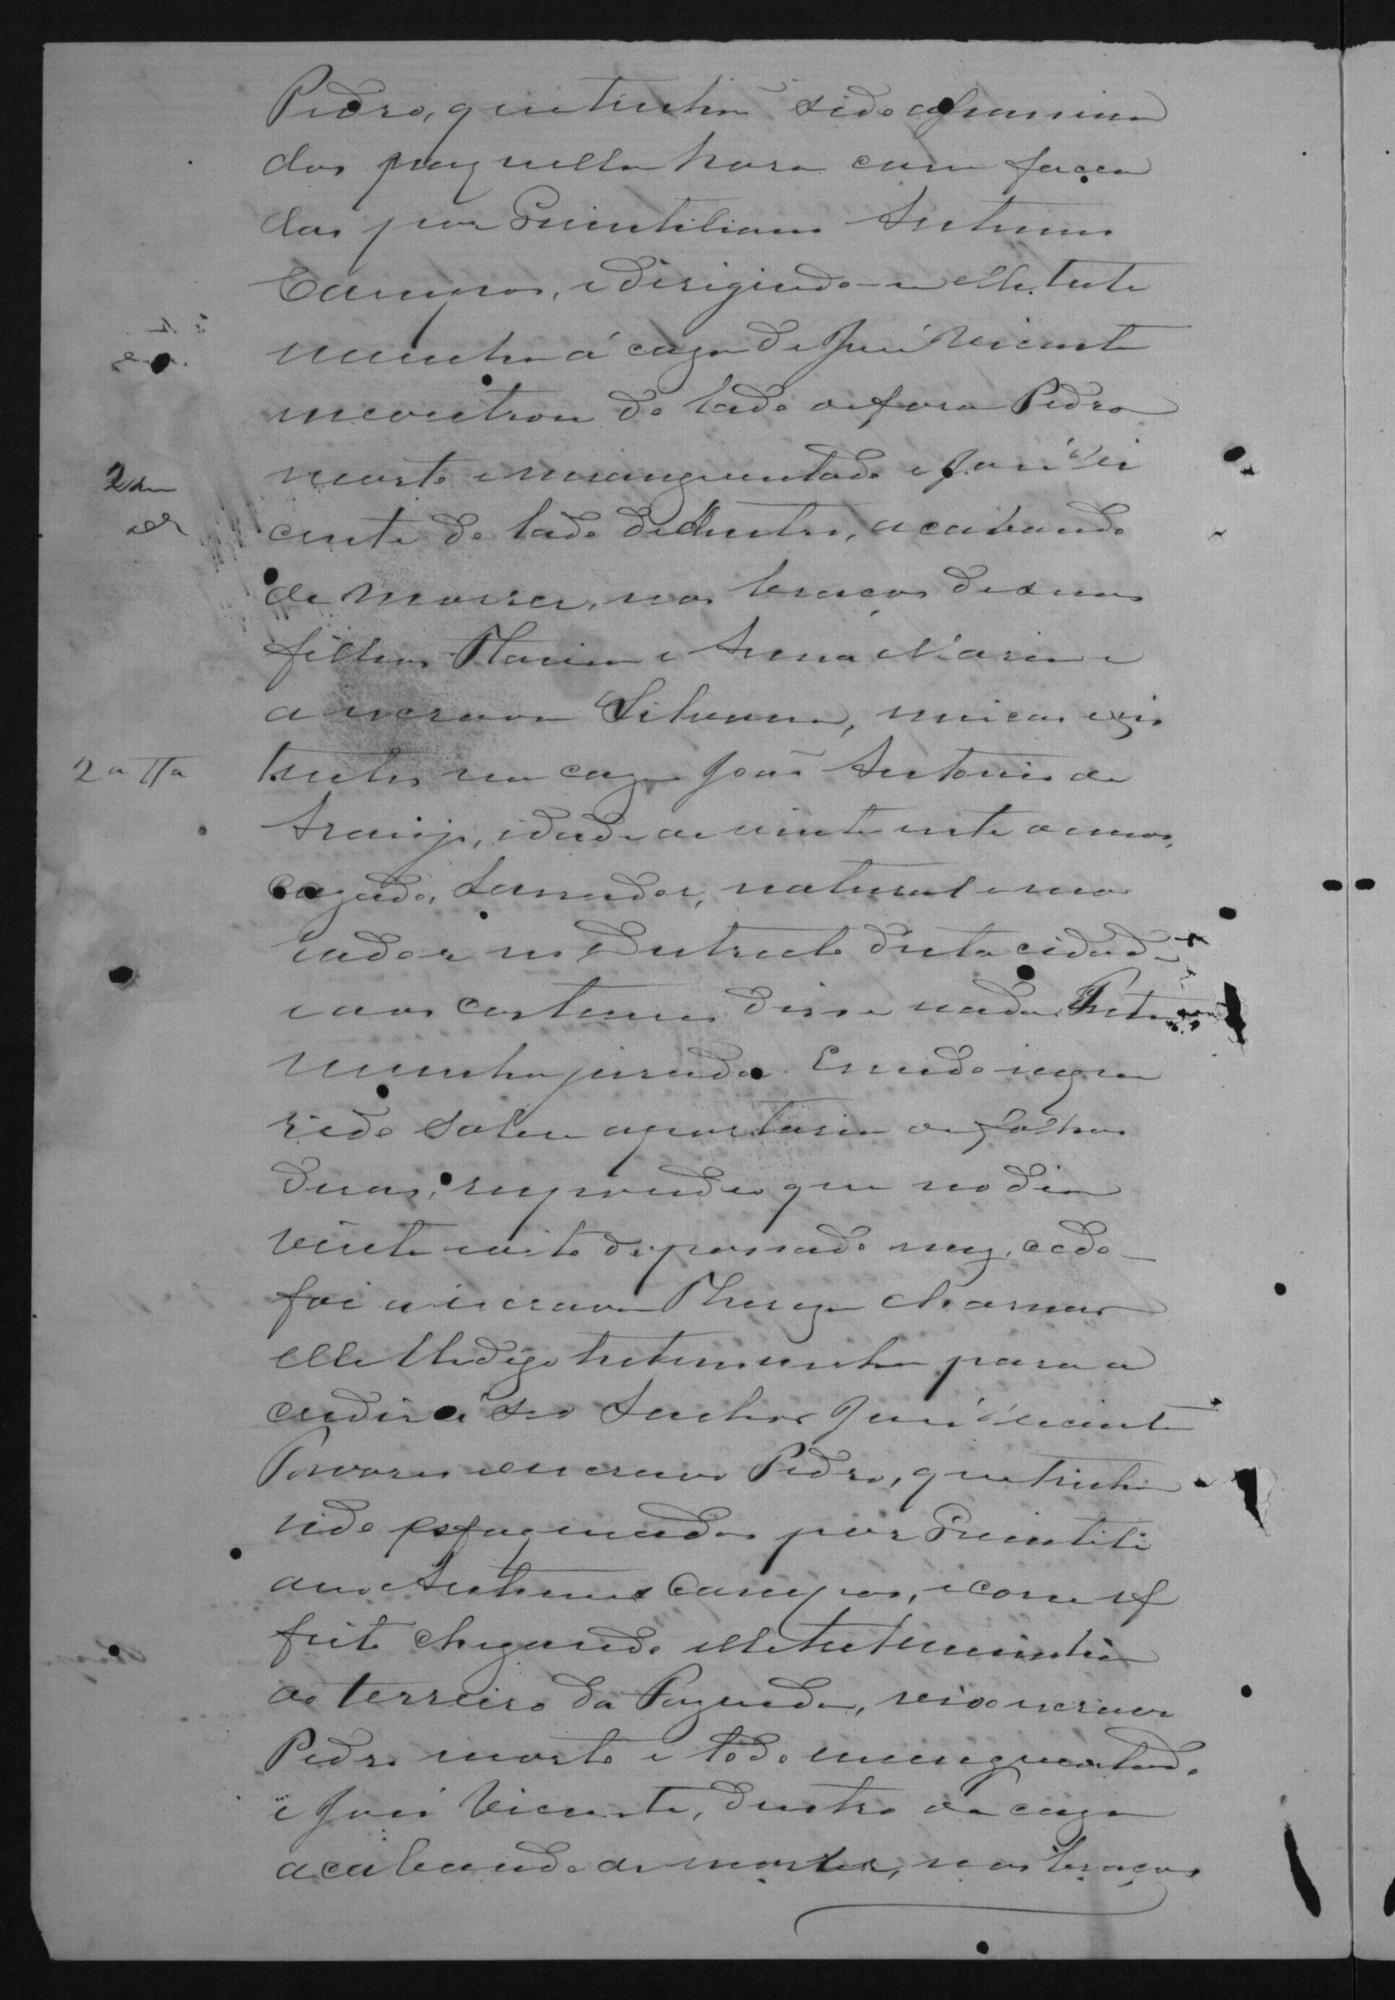 Pedro, que tinhão sido assassina
dos naquella hora com facca
das por Quintiliano Antunes
Campos, e dirigindo-se elle teste
munha á caza de José Vicente
incontrou do lado de fora Pedro
morto e insanguentado e José Vi
cente do lado de dentro, acabando
de morrer, nos braços de suas
filhas Maria e Anna Maria e
a escrava Silvana, unicas exis
2a Tta tentes na caza João Antonio de
Araujo, idade de vinte e sete annos,
cazado, Lavrador, natural e mo
rador no Districto desta cidade
e aos costumes disse nada. Teste
munha jurada. E sendo inque
rido sobre a portaria de folhas
duas, respondeo que no dia
vinte e oito do passado mez, cedo
foi a escrava Thereza chamar
elle digo testemunha para a
cudir a seo Senhor José Vicente
e o escravo Pedro, que tinhão
sido esfaqueados por Quintili
ano Antunes Campos, e com ef
feito chegando elle testemunha
ao terreiro da Fazenda, vio o escravo
Pedro morto e todo insanguentado
e José Vicente, dentro da caza
acabando de morrer, nos braços